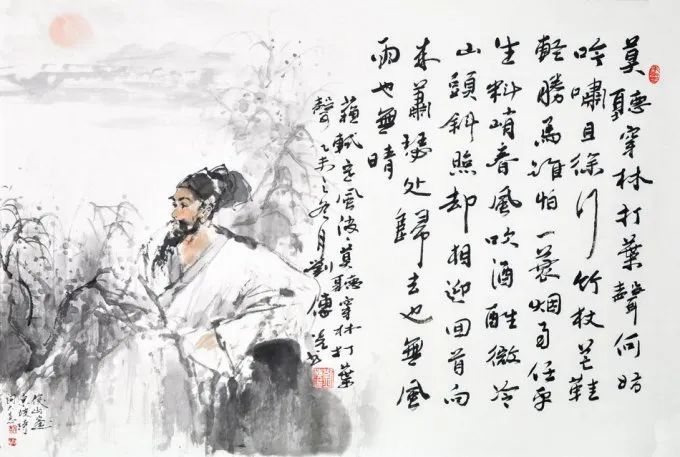 莫聽穿林打葉聲何妨
吟嘯且徐行竹杖芒鞋
輕勝馬誰怕一蓑烟雨任平
生料峭春風吹酒醒微冷
山頭斜照却相迎回首向
來蕭瑟处歸去也無風
雨也無晴
蘇軾定風波莫聽穿林打葉
聲乙未之冬月劉傳
山畫
東坡詩